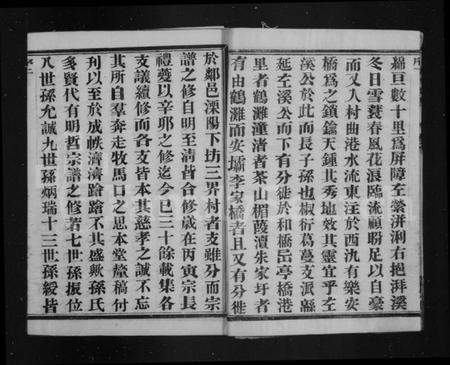 綿亘數十里爲屏障左縈洴浰右挹湃溪
冬日雪蓑春風花浪陸流顧盼足以自豪
而又入村曲港水流東注於西氿有樂安
橋爲之鎮鑰天鍾其秀地效其靈宜乎玉
溪公於此而長子孫也椒衍蔓支派緜
延至溪公而下有分徙於和橋岊亭橋港
里者鶴灘潼渚者茶山楣葭瀆朱家圩者
有由鶴灘而安壩李家橋者且又有分徙
於鄰邑溧陽下坊三界村者支雖分而宗
譜之修自明至清皆合修歲在丙寅宗長
禮蒦以辛夘之修迄今已三十餘載集各
支議續修而各支皆本其慈孝之誠不忘
其所自羣奔走牧馬口之思本堂釐稿付
刋以至於成帙濟濟蹌蹌不其盛歟孫氏
多賢代有明哲宗譜之修若七世孫振位
八世孫允誠九世孫炳瑞十三世孫綬皆